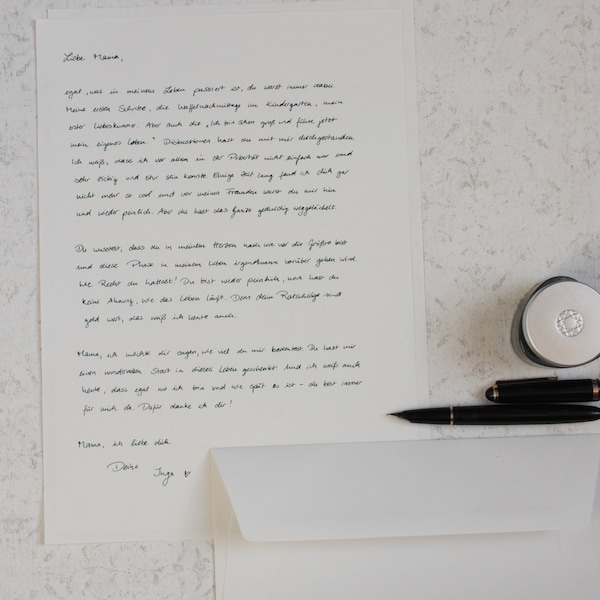 Liebe Mama,
egal, was in meinem Leben passiert ist, du warst immer dabei.
Meine ersten Schritte, die Waffelnachmittage im Kindergarten, mein
erster Liebeskummer. Aber auch die „Ich bin schon groß und führe jetzt
mein eigenes Leben." Diskussionen hast du mit mir durchgestanden.
Ich weiß, dass ich vor allem in der Pubertät nicht einfach war und
sehr zickig und stur sein konnte. Einige Zeit lang fand ich dich gar
nicht mehr so cool und vor meinen Freunden warst du mir hin
und wieder peinlich. Aber du hast das Ganze geduldig weggelächelt.
Du wusstest, dass du in meinem Herzen nach wie vor die Größte bist
und diese Phase in meinem Leben irgendwann vorüber gehen wird.
Wie Recht du hattest! Du bist weder peinlich, noch hast du
keine Ahnung, wie das Leben läuft. Denn deine Ratschläge sind
gold wert, das weiß ich heute auch.
Mama, ich möchte dir sagen, wie viel du mir bedeutest. Du hast mir
einen wundervollen Start in dieses Leben geschenkt. Und ich weiß auch
heute, dass egal wo ich bin und wie spät es ist - du bist immer
für mich da. Dafür danke ich dir!
Mama, ich liebe dich.
Deine
Inga